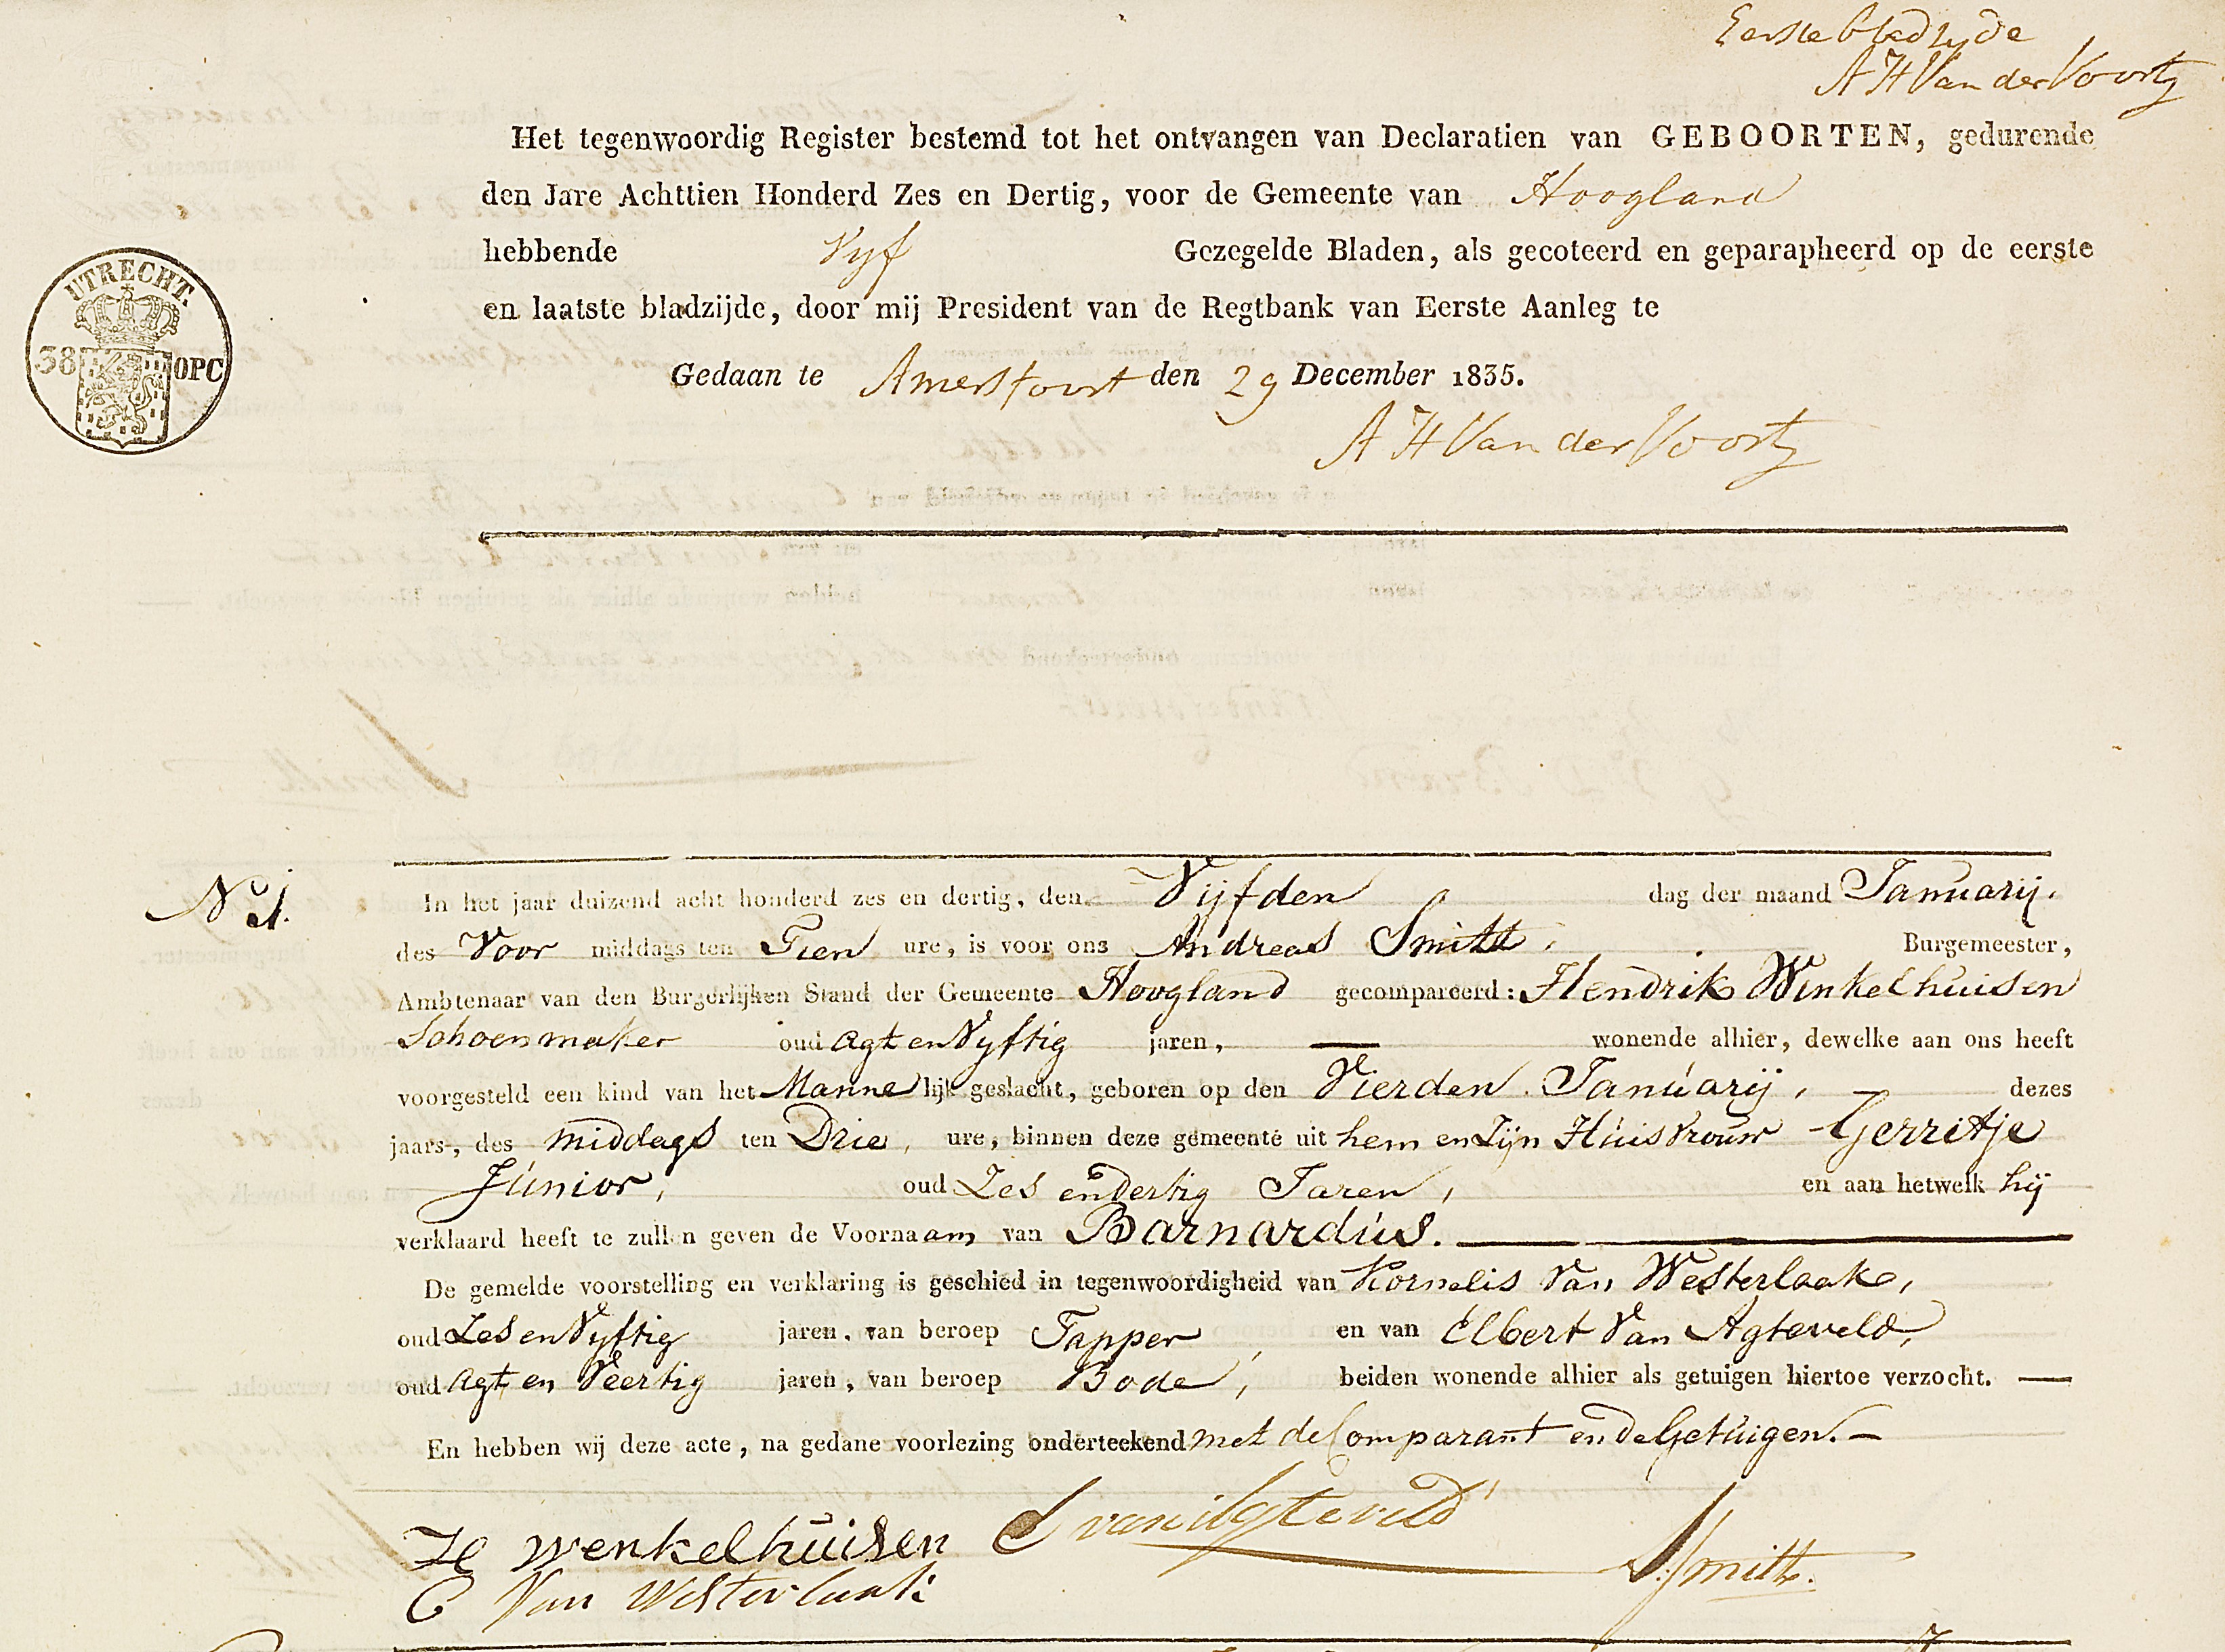 Eerste bladzyde
A H Van der Voort
Het tegenwoordig Register bestemd tot het ontvangen van Declaratien van GEBOORTEN, gedurende
den Jare Achttien Honderd Zes en Dertig, voor de Gemeente van Hoogland
hebbende Vyf Gezegelde Bladen, als gecoteerd en geparapheerd op de eerste
en laatste bladzijde, door mij President van de Regtbank van Eerste Aanleg te
Gedaan te Amersfoort den 29 December 1835.
A H Van der Voort
UTRECHT.
38 OPC
N 1.
In het jaar duizend acht honderd zes en dertig, den Vijfden dag der maand Januarij.
des Voor middags ten Tien ure, is voor ons Andreas Smitt, Burgemeester,
Ambtenaar van den Burgerlijken Stand der Gemeente Hoogland gecompareerd: Hendrik Winkelhuisen
Schoenmaker oud agt en Vyftig jaren, — wonende alhier, dewelke aan ons heeft
voorgesteld een kind van het Manne lijk geslacht, geboren op den Vierden Januarij, dezes
jaars, des middags ten Drie, ure, binnen deze gemeente uit hem en Zijn Huisvrouw Gerritje
Júnior, oud Zes en Dertig Jaren, en aan hetwelk hij
verklaard heeft te zullen geven de Voornaam van Barnardús. —
De gemelde voorstelling en verklaring is geschied in tegenwoordigheid van Kornelis Van Westerlaake,
oud Zes en Vyftig jaren, van beroep Tapper, en van Elbert Van Agteveld,
oud agt en Veertig jaren, van beroep Bode, beiden wonende alhier als getuigen hiertoe verzocht. —
En hebben wij deze acte, na gedane voorlezing onderteekend met de Comparant en de Getuigen. —
H wenkelhuisen E van Agteveld
A Smitt.
C Van Westerlaak